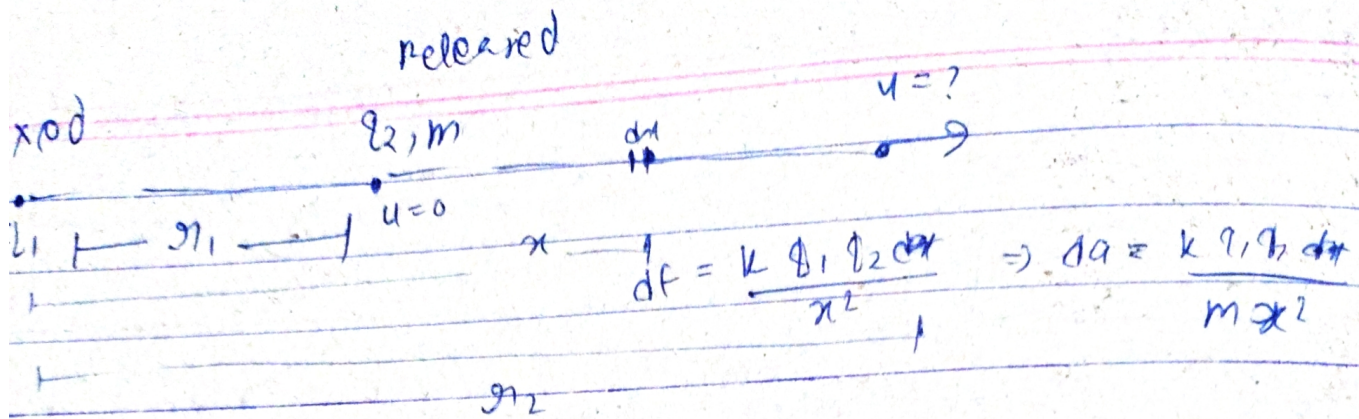 released
xed
q2, m
dx
u = ?
q1
r1
u=0
x
df = k q1 q2 dx / x² ⇒ da = k q1 q2 dx / m x²
r2